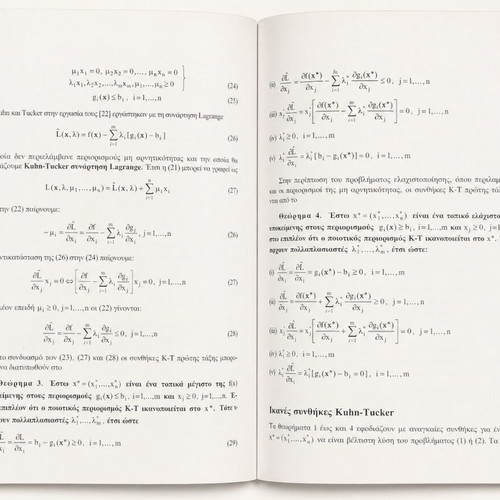 μ₁x₁ = 0, μ₂x₂ = 0,..., μₙxₙ = 0
λ₁x₁, λ₂x₂,..., λₘxₘ, μ₁,..., μₙ ≥ 0 (24)
gᵢ(x) ≤ bᵢ, i = 1,...,n (25)
uhn και Tucker στην εργασία τους [22] εργάστηκαν με τη συνάρτηση Lagrange
L̂(x,λ) = f(x) − ∑ᵢ₌₁ᵐ λᵢ[gᵢ(x) − bᵢ] (26)
οία δεν περιελάμβανε περιορισμούς μη αρνητικότητας και την οποία θα
άζουμε Kuhn-Tucker συνάρτηση Lagrange. Έτσι η (21) μπορεί να γραφεί ως
L(x, λ, μ₁,..., μₙ) = L̂(x, λ) + ∑ᵢ₌₁ⁿ μᵢxᵢ (27)
την (22) παίρνουμε:
−μⱼ = ∂L̂/∂xⱼ = ∂f/∂xⱼ − ∑ᵢ₌₁ᵐ λᵢ ∂gᵢ/∂xⱼ, j = 1,...,n (27)
ντικατάσταση της (26) στην (24) παίρνουμε:
∂L̂/∂xⱼ xⱼ = 0 ⇔ [∂f/∂xⱼ − ∑ᵢ₌₁ᵐ λᵢ ∂gᵢ/∂xⱼ] xⱼ = 0, j = 1,...,n
λέον επειδή μⱼ ≥ 0, j = 1,...,n οι (22) γίνονται:
∂L̂/∂xⱼ = ∂f/∂xⱼ − ∑ᵢ₌₁ᵐ λᵢ ∂gᵢ/∂xⱼ ≤ 0, j = 1,...,n (28)
το συνδυασμό των (23). (27) και (28) οι συνθήκες K-T πρώτης τάξης μπορο-
να διατυπωθούν στο
Θεώρημα 3. Έστω x* = (x₁*,...,xₙ*) είναι ένα τοπικά μέγιστο της f(x)
κείμενης στους περιορισμούς gᵢ(x) ≤ bᵢ, i = 1,...,m και xⱼ ≥ 0, j = 1,...,n. Έ-
επιπλέον ότι ο ποιοτικός περιορισμός K-T ικανοποιείται στο x*. Τότε
ουν πολλαπλασιαστές λ₁*,...,λₘ*, έτσι ώστε
∂L̂/∂λᵢ = ∂L̂/∂λᵢ = bᵢ − gᵢ(x*) ≥ 0, i = 1,...,m (29)
(ii) ∂L̂/∂xⱼ = ∂f(x*)/∂xⱼ − ∑ᵢ₌₁ᵐ λᵢ* ∂gᵢ(x*)/∂xⱼ ≤ 0, j = 1,...,n
(iii) xⱼ ∂L̂/∂xⱼ = xⱼ [∂f(x*)/∂xⱼ − ∑ᵢ₌₁ᵐ λᵢ* ∂gᵢ(x*)/∂xⱼ] = 0, j = 1,...,n
(iv) λᵢ* ≥ 0, i = 1,...,m
(v) λᵢ ∂L̂/∂λᵢ = λᵢ* [bᵢ − gᵢ(x*)] = 0, i = 1,...,m
Στην περίπτωση του προβλήματος ελαχιστοποίησης, όπου περιλαμβ
και οι περιορισμοί της μη αρνητικότητας, οι συνθήκες K-T πρώτης τάξ
νται από το
Θεώρημα 4. Έστω x* = (x₁*,...,xₙ*) είναι ένα τοπικό ελάχιστο
υποκείμενης στους περιορισμούς gᵢ(x) ≥ bᵢ, i = 1,...,m και xⱼ ≥ 0, j = 1,...
στω επιπλέον ότι ο ποιοτικός περιορισμός K-T ικανοποιείται στο x*.
πάρχουν πολλαπλασιαστές λ₁*,...,λₘ*, έτσι ώστε:
i) ∂L̂/∂λᵢ = ∂L̂/∂λᵢ = gᵢ(x*) − bᵢ ≥ 0, i = 1,...,m
ii) ∂L̂/∂xⱼ = ∂f(x*)/∂xⱼ + ∑ᵢ₌₁ᵐ λᵢ* ∂gᵢ(x*)/∂xⱼ ≥ 0, j = 1,...,n
(iii) xⱼ ∂L̂/∂xⱼ = xⱼ [∂f(x*)/∂xⱼ + ∑ᵢ₌₁ᵐ λᵢ* ∂gᵢ(x*)/∂xⱼ] = 0, j = 1,...,n
(iv) λᵢ* ≥ 0, i = 1,...,m
(v) λᵢ ∂L̂/∂λᵢ = λᵢ*[gᵢ(x*) − bᵢ = 0], i = 1,...,m
Ικανές συνθήκες Kuhn-Tucker
Τα θεωρήματα 1 έως και 4 εφοδιάζουν με αναγκαίες συνθήκες για έν
x* = (x₁*,...,xₙ*) να είναι βέλτιστη λύση του προβλήματος (1) ή (2). Τα